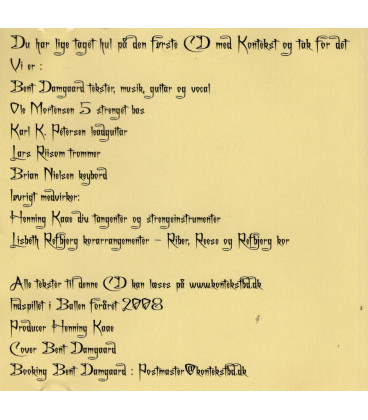 Du har lige taget hul på den første CD med Kontekst og tak for det
Vi er :
Bent Damgaard tekster, musik, guitar og vocal
Ole Mortensen 5 strenget bas
Karl K. Petersen leadguitar
Lars Riisom trommer
Brian Nielsen keybord
Iøvrigt medvirker:
Henning Kaae div tangenter og strengeinstrumenter
Lisbeth Refbjerg korarrangementer – Riber, Reese og Refbjerg kor
Alle tekster til denne CD kan læses på www.kontekstbd.dk
Indspillet i Ballen foråret 2008
Producer Henning Kaae
Cover Bent Damgaard
Booking Bent Damgaard : Postmaster@kontekstbd.dk